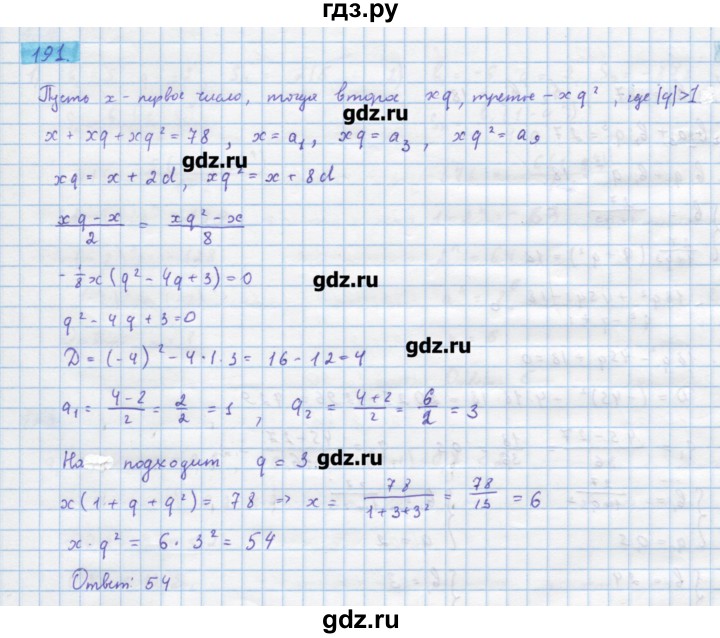 гдз.ру
191.
Пусть x - первое число, тогда второе xq, третье - xq², где |q|>1
gdz.ru
x + xq + xq² = 78 , x = a₁ , xq = a₃ , xq² = a₉
gdz.ru
xq = x + 2d , xq² = x + 8d
(xq - x)/2 = (xq² - x)/8
- 1/8 x (q² - 4q + 3) = 0
gdz.ru
q² - 4q + 3 = 0
D = (-4)² - 4·1·3 = 16 - 12 = 4
gdz.ru
q₁ = (4-2)/2 = 2/2 = 1 , q₂ = (4+2)/2 = 6/2 = 3
На подходит q = 3
gdz.ru
x (1 + q + q²) = 78 => x = 78/(1+3+3²) = 78/13 = 6
x · q² = 6 · 3² = 54
Ответ: 54
gdz.ru